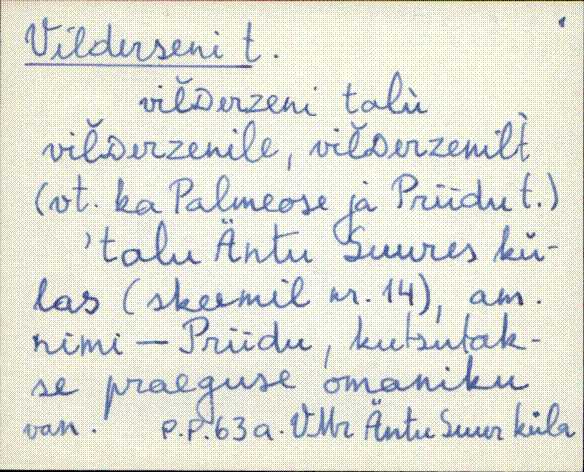 Vilderseni t.
vilDerzeni talù
vilDerzenile, vilDerzenilt̀
(vt. ka Palmeose ja Priidu t.)
'talu Äntu Suures kü-
las (skeemil nr. 14), am.
nimi — Priidu, kutsutak-
se praeguse omaniku
van. P.P. 63 a. VMr Äntu Suur küla